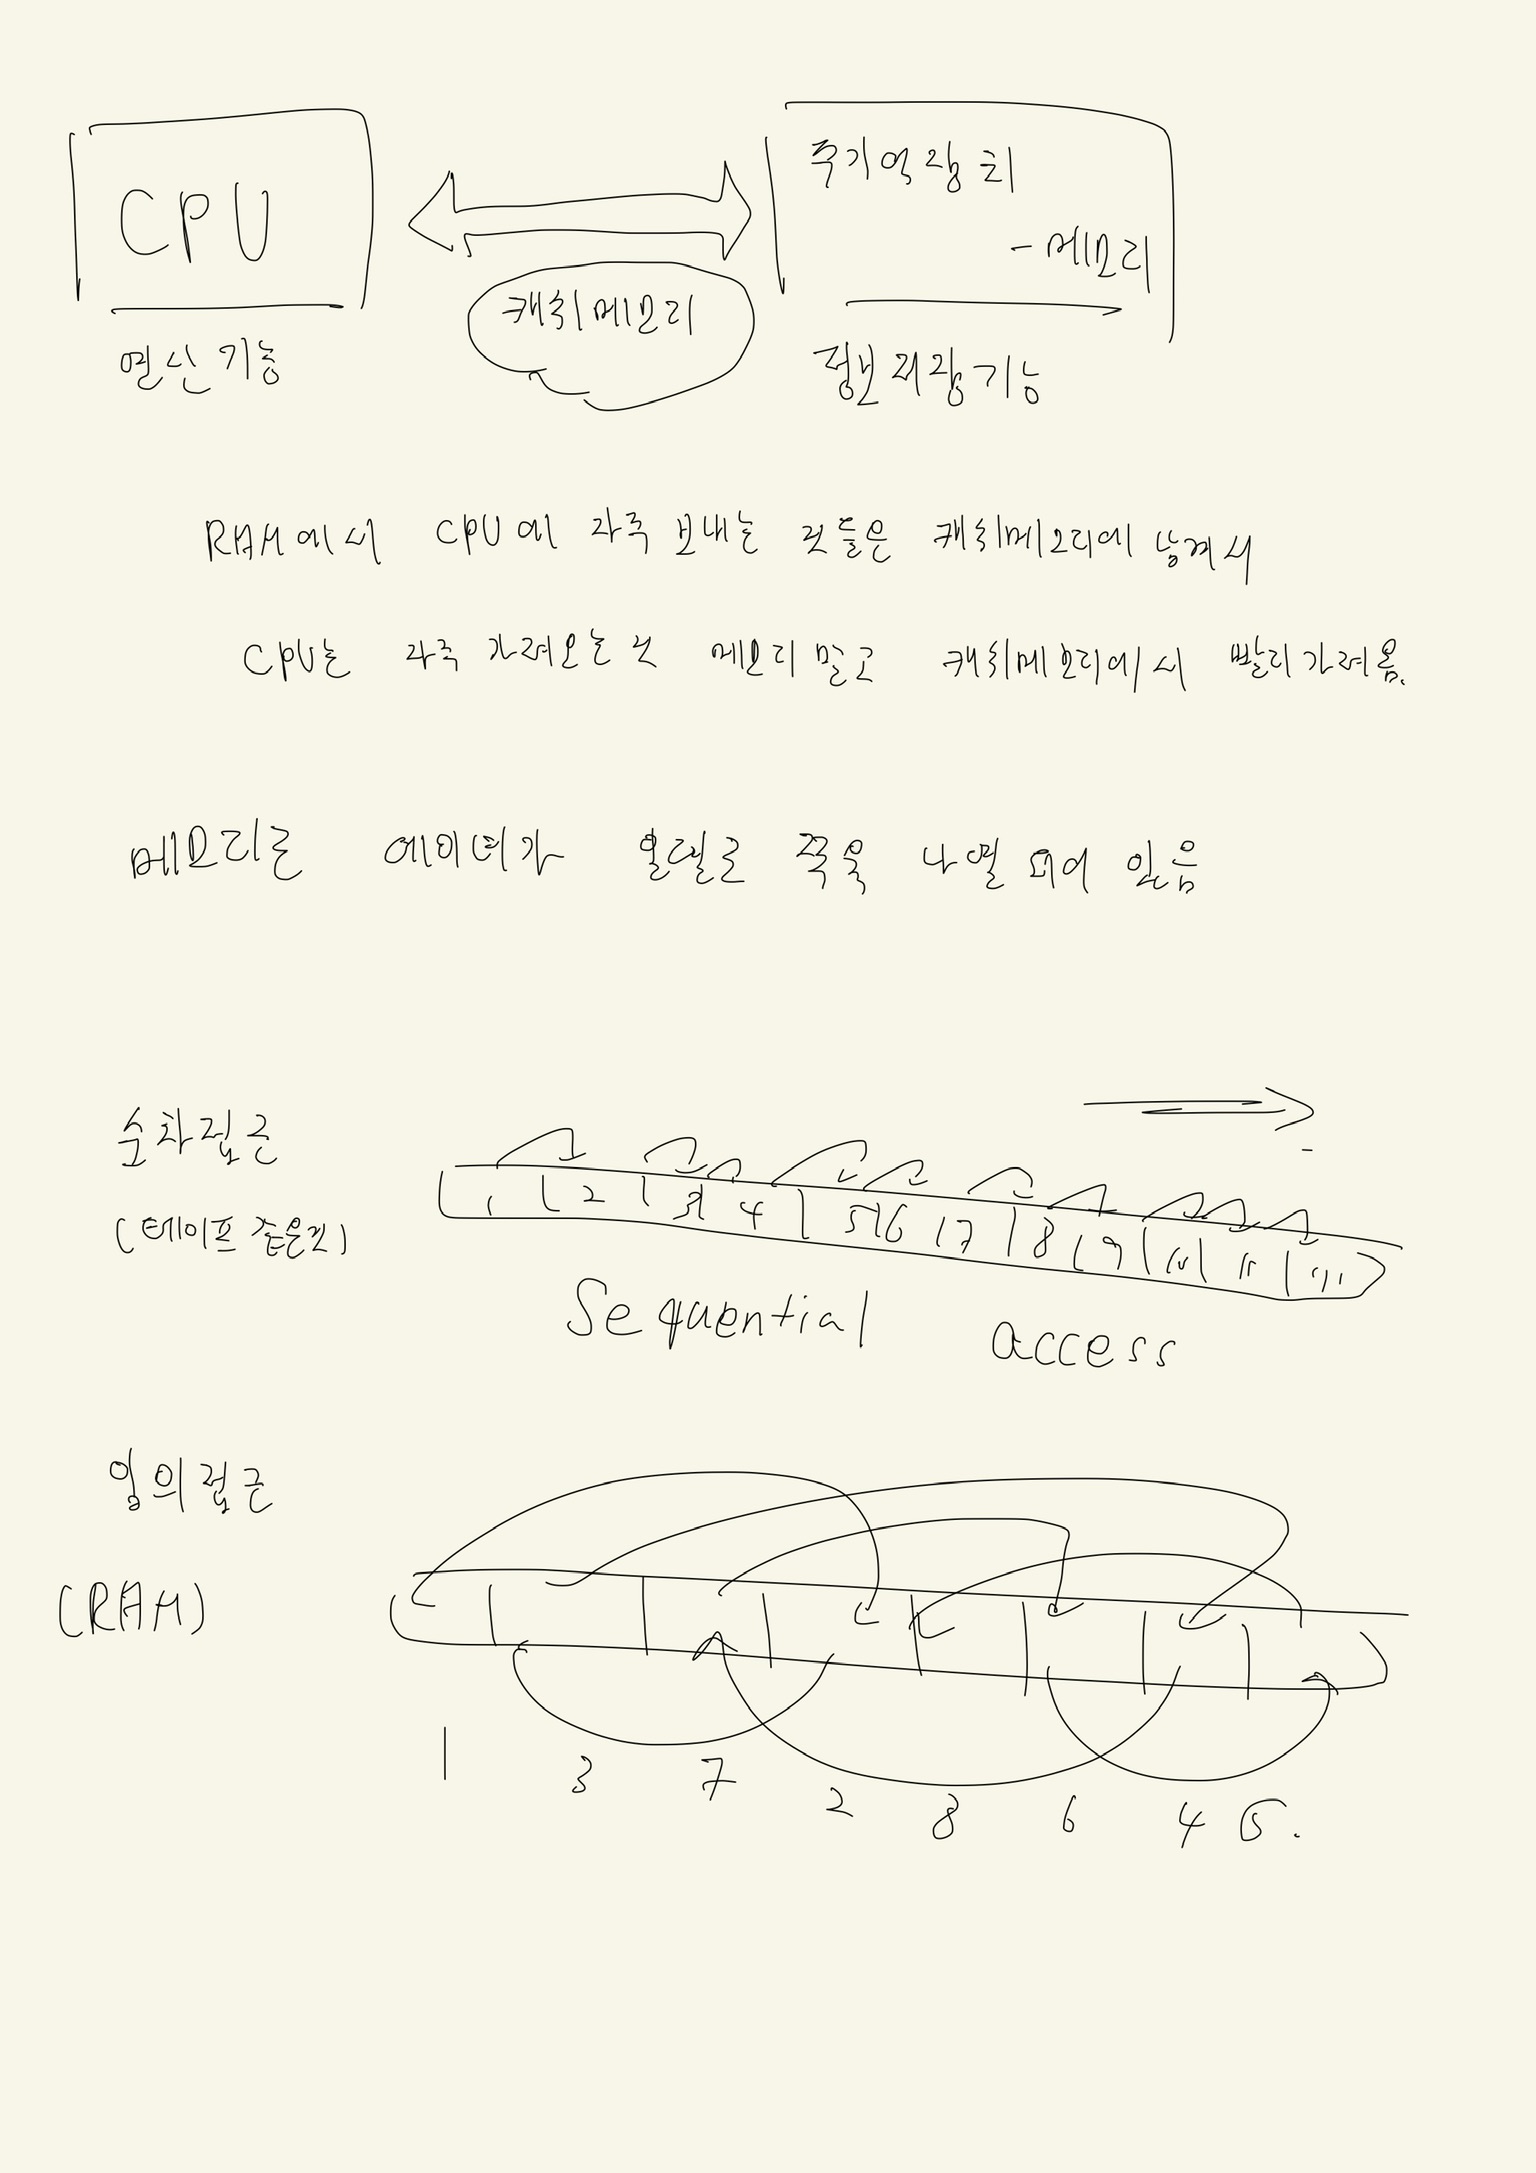 CPU
주기억장치
-메모리
캐쉬메모리
연산기능
정보저장기능
RAM에서 CPU에 자주 보내는 것들은 캐쉬메모리에 남겨서
CPU는 자주 가져오는 것 메모리 말고 캐쉬메모리에서 빨리 가져옴.
메모리는 데이터가 일렬로 쭉 나열 되어 있음
순차접근
(테이프 같은거)
1 2 3 4 5 6 7 8 9 10 11
Sequential access
임의접근
(RAM)
1 3 7 2 8 6 4 5.